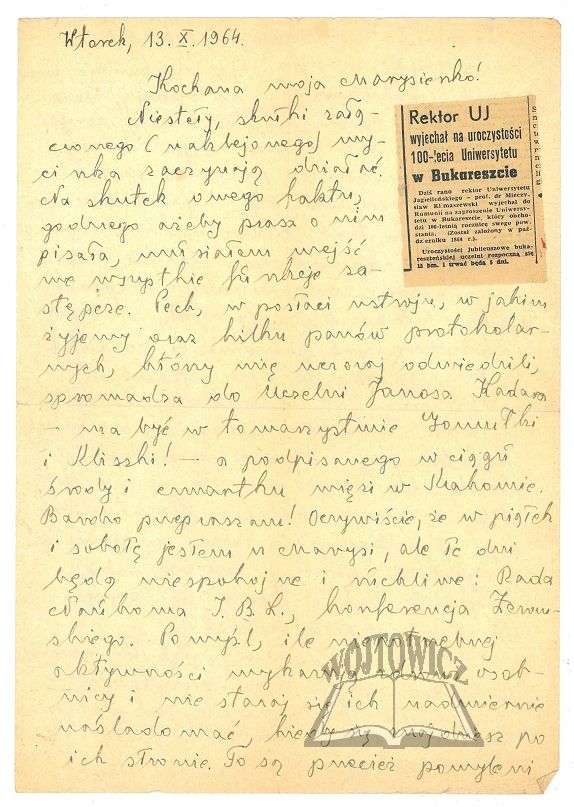 Wtorek, 13. X. 1964.
Kochana moja Marysieńko!
Niestety, skutki załą-
czonego (naklejonego) wy-
cinka zaczynają działać.
Na skutek owego faktu,
godnego ażeby prasa o nim
pisała, musiałem wejść
we wszystkie funkcje za-
stępcze. Pech, w postaci ustroju, w jakim
żyjemy oraz kilku panów protokolar-
nych, którzy mię wczoraj odwiedzili,
sprowadza do Uczelni Janosa Kadara
– ma być w towarzystwie Gomułki
i Kliszki! – a podpisanego w ciągu
środy i czwartku więzi w Krakowie.
Bardzo przepraszam! Oczywiście, że w piątek
i sobotę jestem u Marysi, ale te dni
będą niespokojne i ruchliwe: Rada
Naukowa I.B.L., konferencja Żerom-
skiego. Pomyśl, ile niepotrzebnej
aktywności wykazują zdrowi osob-
nicy i nie staraj się ich nadmiernie
naśladować, kiedy się znajdziesz po
ich stronie. To są przecież pomyleni
Rektor UJ
wyjechał na uroczystości
100-lecia Uniwersytetu
w Bukareszcie
Dziś rano rektor Uniwersytetu
Jagiellońskiego – prof. dr Mieczy-
sław Klimaszewski wyjechał do
Rumunii na zaproszenie Uniwersy-
tetu w Bukareszcie, który obcho-
dzi 100-letnią rocznicę swego pow-
stania. (Został założony w paź-
dzierniku 1864 r.).
Uroczystości jubileuszowe buka-
reszteńskiej uczelni rozpoczną się
15 bm. i trwać będą 5 dni.
WÓJTOWICZ